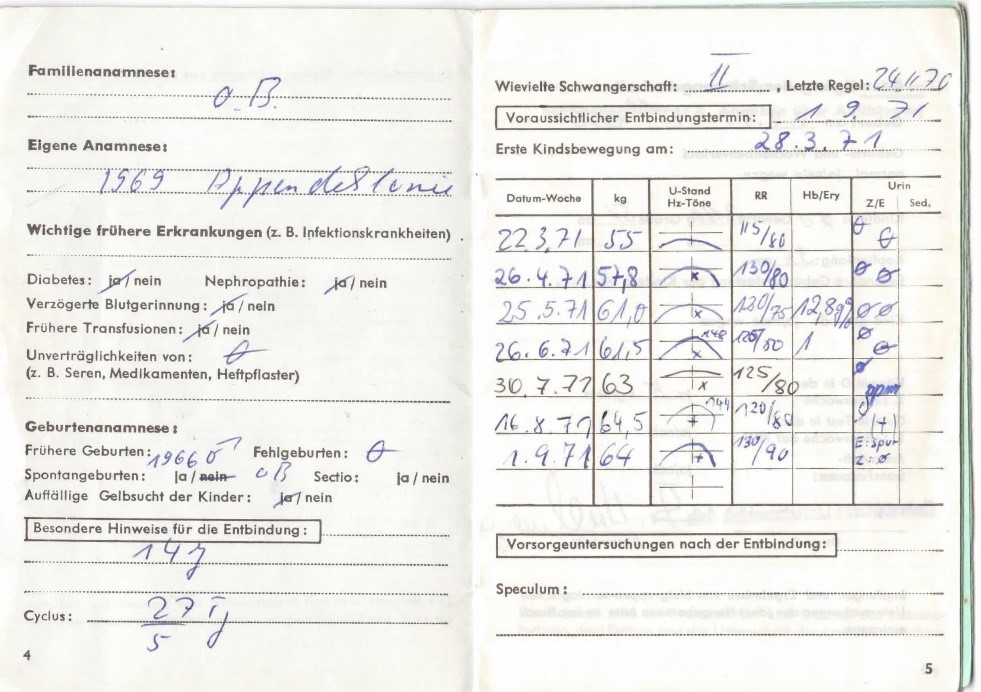 Familienanamnese:
o. B.
Eigene Anamnese:
1969
Wichtige frühere Erkrankungen (z. B. Infektionskrankheiten)
Diabetes: ja / nein Nephropathie: ja / nein
Verzögerte Blutgerinnung: ja / nein
Frühere Transfusionen: ja / nein
Unverträglichkeiten von: Ø
(z. B. Seren, Medikamenten, Heftpflaster)
Geburtenanamnese:
Frühere Geburten: 1966 ♂ Fehlgeburten: Ø
Spontangeburten: ja / nein oB Sectio: ja / nein
Auffällige Gelbsucht der Kinder: ja / nein
Besondere Hinweise für die Entbindung:
14j
Cyclus: 27 Tj
5
4
Wievielte Schwangerschaft: II, Letzte Regel: 24.11.70
Voraussichtlicher Entbindungstermin: 1. 9. 71
Erste Kindsbewegung am: 28.3.71
Datum-Woche kg U-Stand Hz-Töne RR Hb/Ery Urin Z/E Sed.
22.3.71 55 115/80 Ø Ø
26.4.71 57,8 x 130/80 Ø Ø
25.5.71 61,0 x 130/75 12,8g% Ø Ø
26.6.71 61,5 148 x /80 1 Ø Ø
30.7.71 63 x 125/80 Ø
16.8.71 64,5 144 + 120/80 (+)
1.9.71 64 + 130/90 E: Spur Z: Ø
Vorsorgeuntersuchungen nach der Entbindung:
Speculum:
5